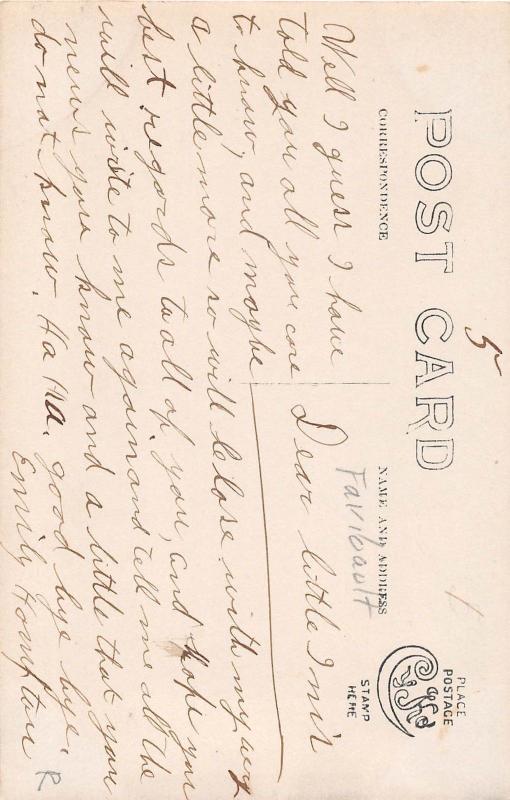 POST CARD
5
CORRESPONDENCE
NAME AND ADDRESS
PLACE
POSTAGE
STAMP
HERE
Faribault
Dear little
Well I guess I have
told you all you care
to know, and maybe
a little more so will close with my very
best regards to all of you, and hope you
will write to me again and tell me all the
news you know and a little that you
do not know. Ha Ha. good bye bye.
Emily
R